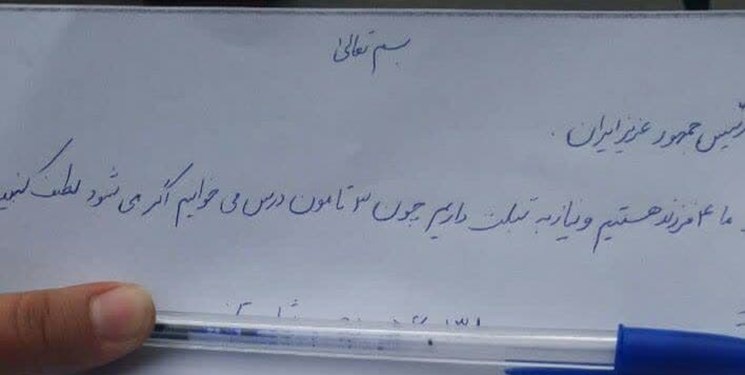 بسم تعالی
رئیس جمهور عزیز ایران.
ما ۴ فرزند هستیم و نیاز به تبلت داریم چون ۳ تامون درس می خوانیم اگر می شود لطف کنید